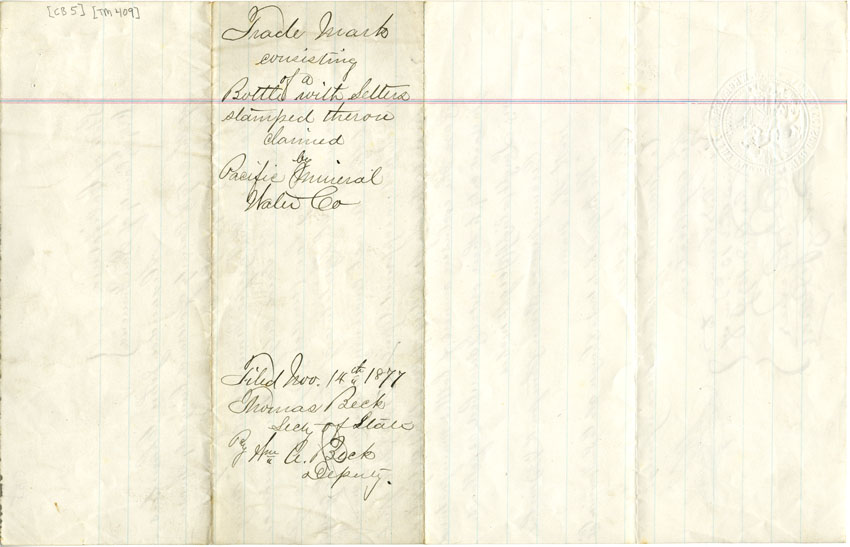 [CB5] [TM 409]
Trade Mark
consisting
of a
Bottle with Letters
stamped theron
claimed
by
Pacific Mineral
Water Co
Filed Nov. 14th 1877
Thomas Beck
Secty of State
By Wm C. Beck
Deputy.